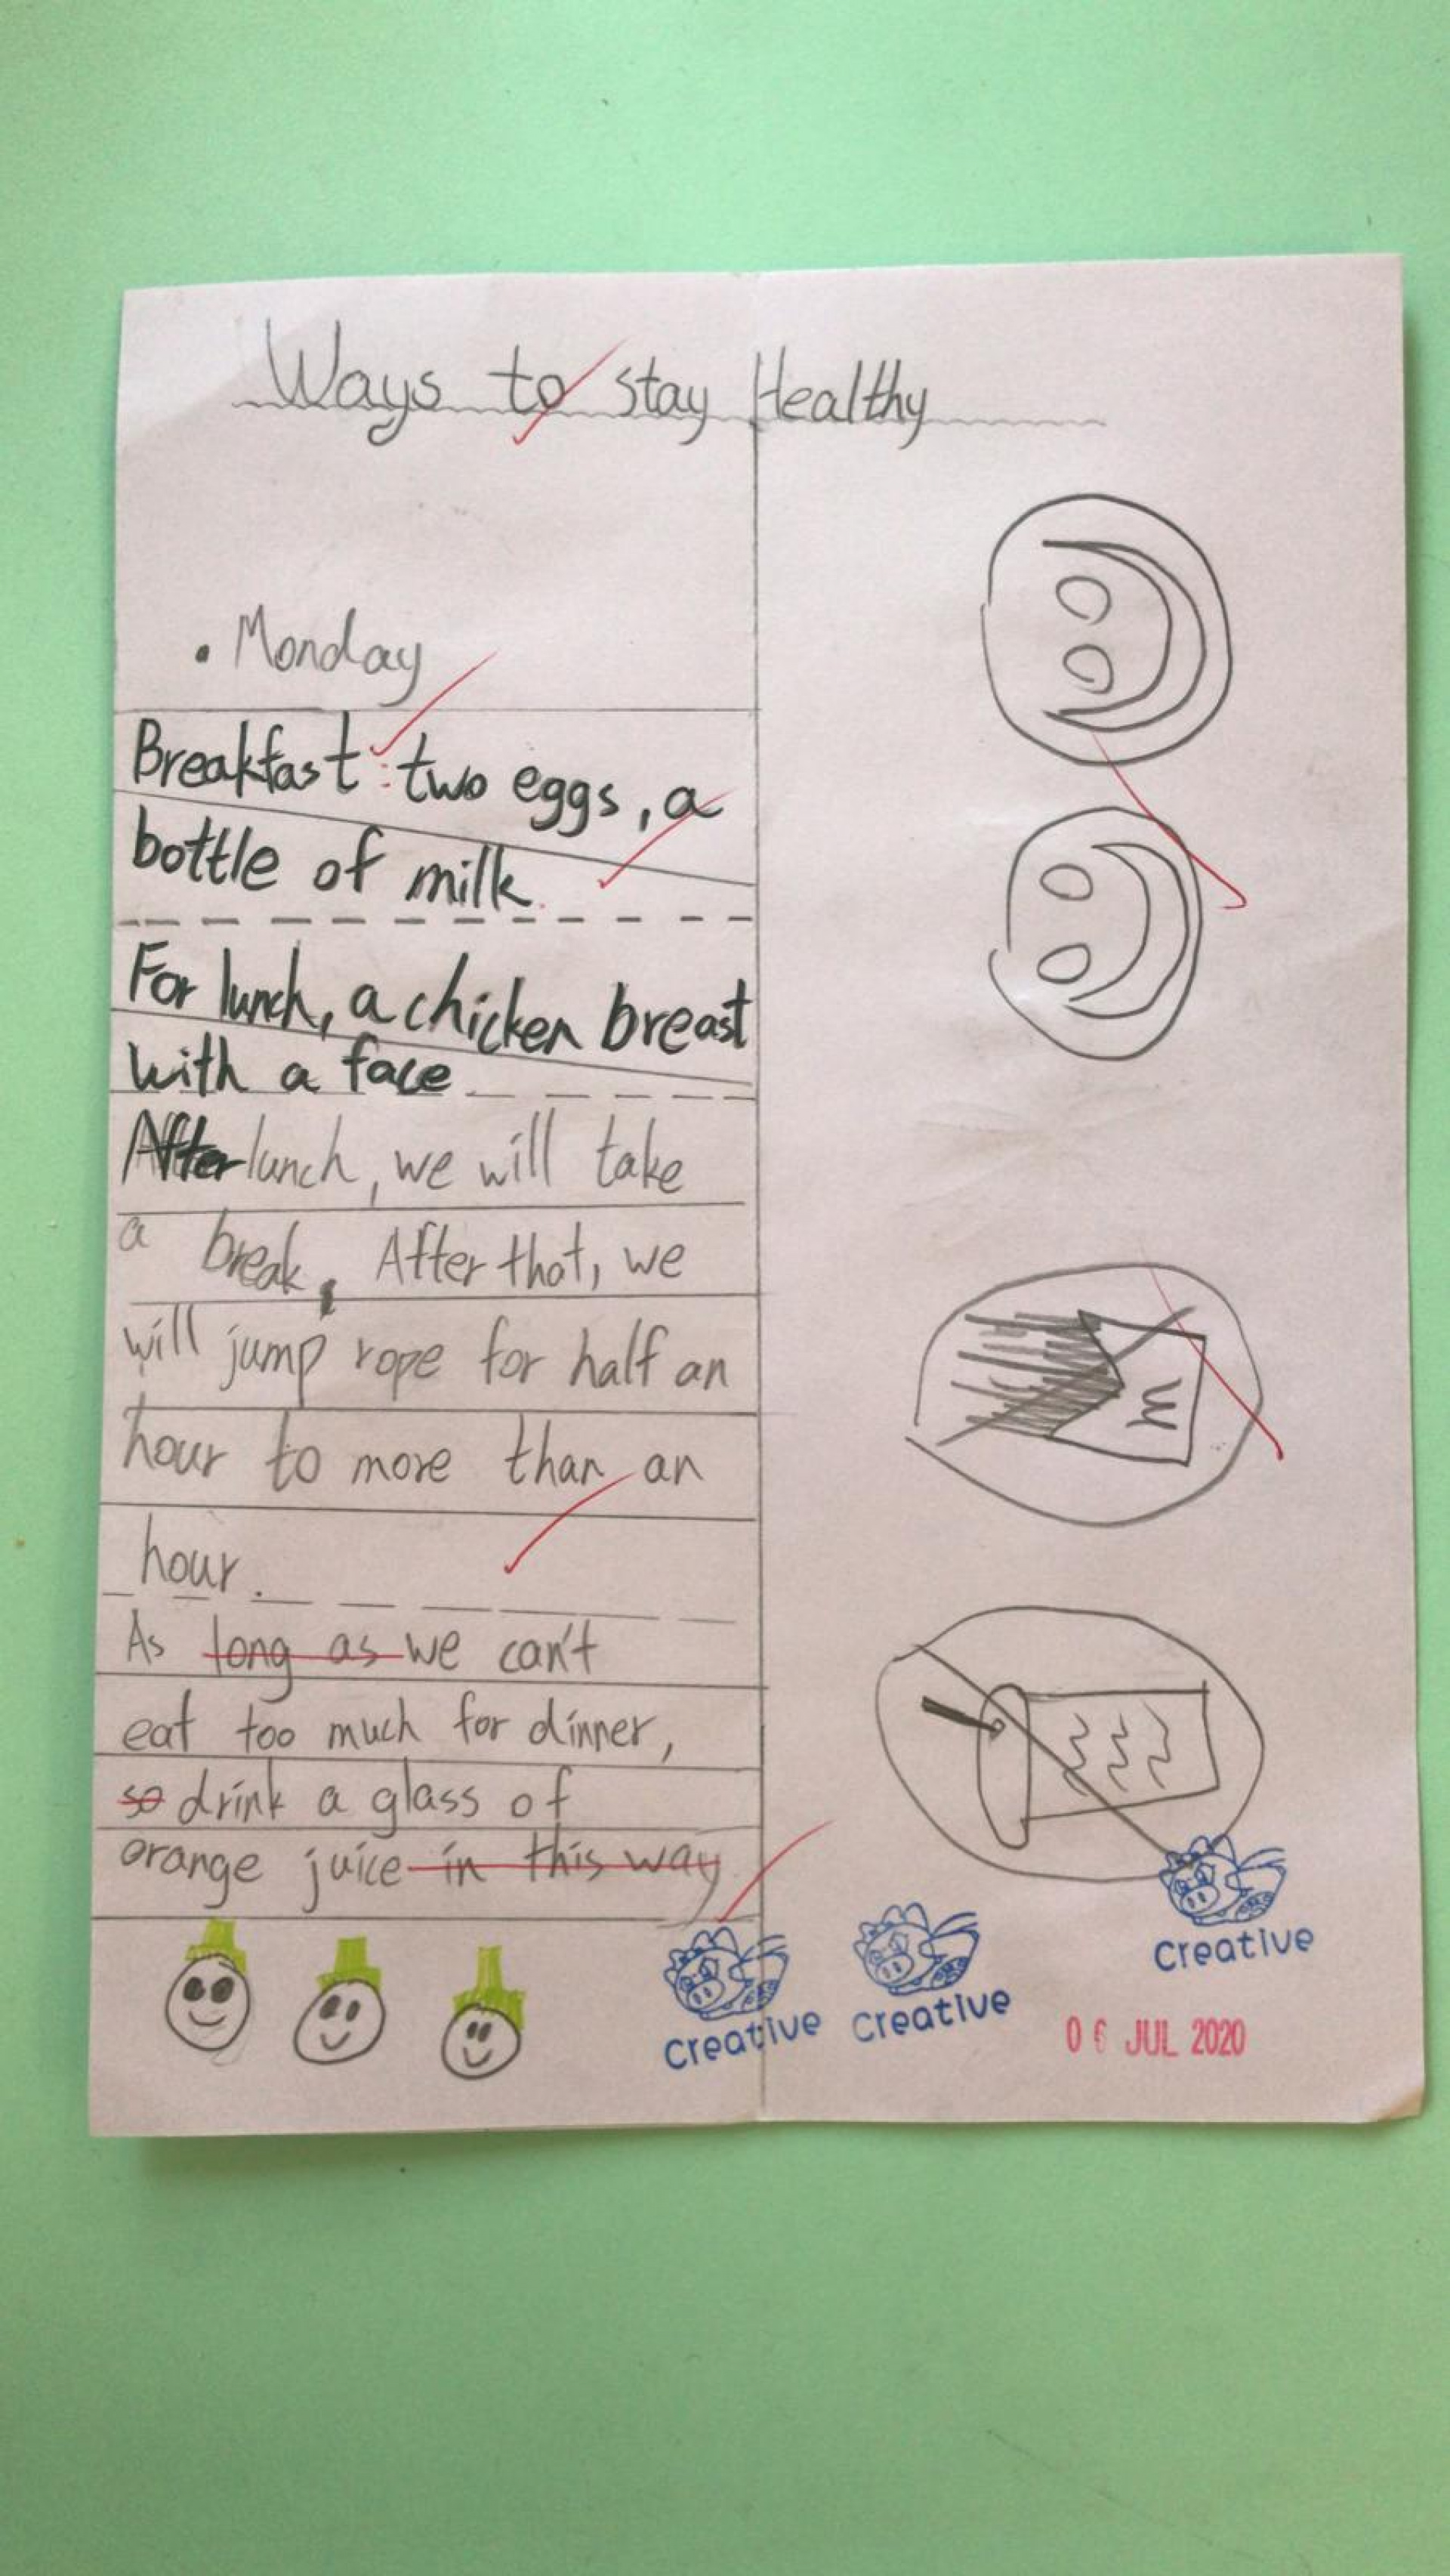 Ways to stay Healthy
• Monday
Breakfast: two eggs, a
bottle of milk.
For lunch, a chicken breast
with a face
After lunch, we will take
a break. After that, we
will jump rope for half an
hour to more than an
hour.
As long as we can't
eat too much for dinner,
so drink a glass of
orange juice in this way
Creative
Creative
Creative
06 JUL 2020